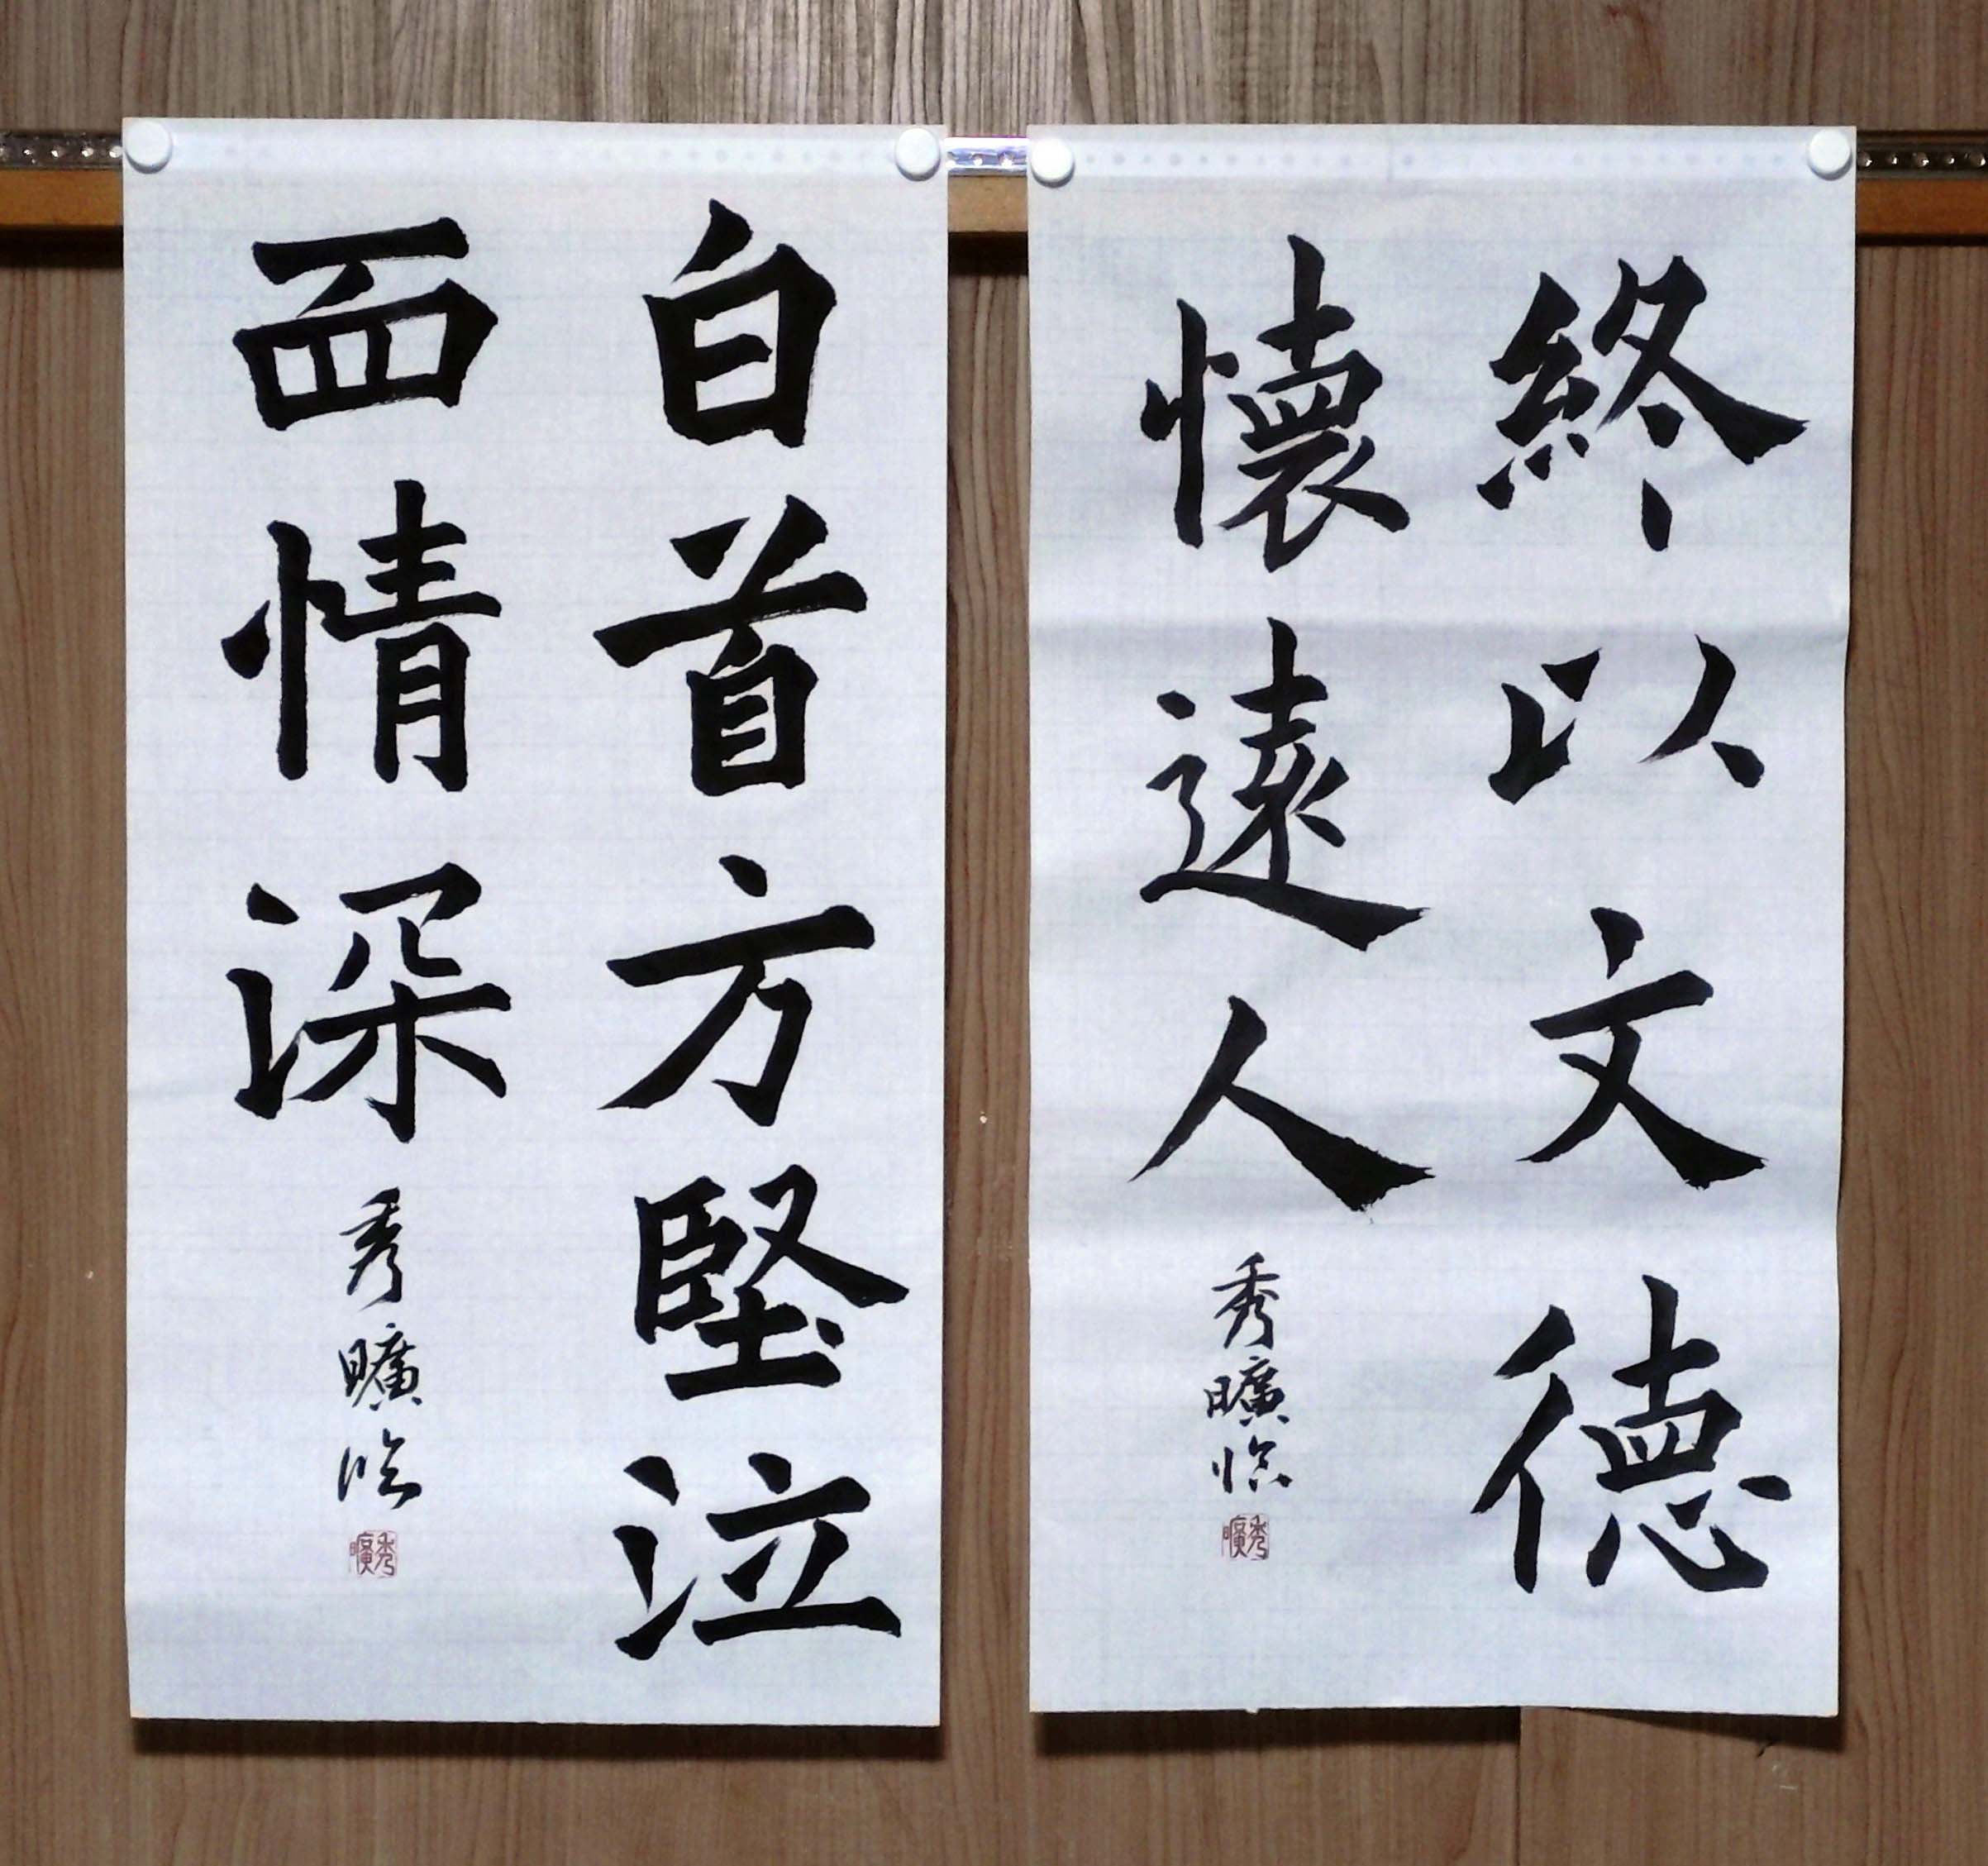 終以文德
懷遠人
秀曠臨
秀曠
白首方堅泣
而情深
秀曠臨
秀曠